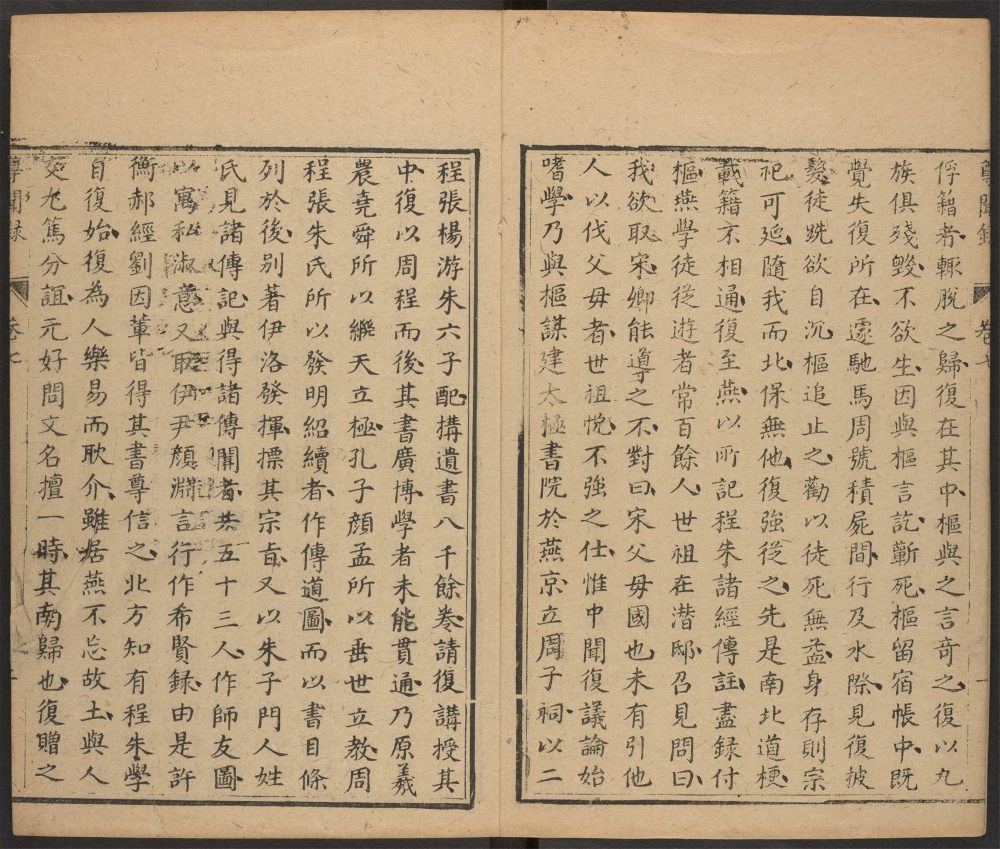 尊聞錄 卷七 一
俘籍者輒脫之歸復在其中樞與之言奇之復以九
族俱殘毀不欲生因與樞言訖蘄死樞留宿帳中既
覺失復所在遽馳馬周號積屍間行及水際見復披
髮徒跣欲自沉樞追止之勸以徒死無益身存則宗
祀可延隨我而北保無他復強從之先是南北道梗
載籍不相通復至燕以所記程朱諸經傳註盡録付
樞燕學徒從遊者常百餘人世祖在潛邸召見問曰
我欲取宋卿能導之不對曰宋父母國也未有引他
人以伐父母者世祖悅不強之仕惟中聞復議論始
嗜學乃與樞謀建太極書院於燕京立周子祠以二
程張楊游朱六子配搆遺書八千餘卷請復講授其
中復以周程而後其書廣博學者未能貫通乃原羲
農堯舜所以繼天立極孔子顏孟所以垂世立教周
程張朱氏所以發明紹續者作傳道圖而以書目條
列於後别著伊洛發揮摽其宗㫖又以朱子門人姓
氏見諸傳記與得諸傳聞者共五十三人作師友圖
以寓私淑意又取伊尹顏淵言行作希賢録由是許
衡郝經劉因輩皆得其書尊信之北方知有程朱學
自復始復為人樂易而耿介雖居燕不忘故土與人
交尤篤分誼元好問文名擅一時其南歸也復贈之
尊聞錄 卷七